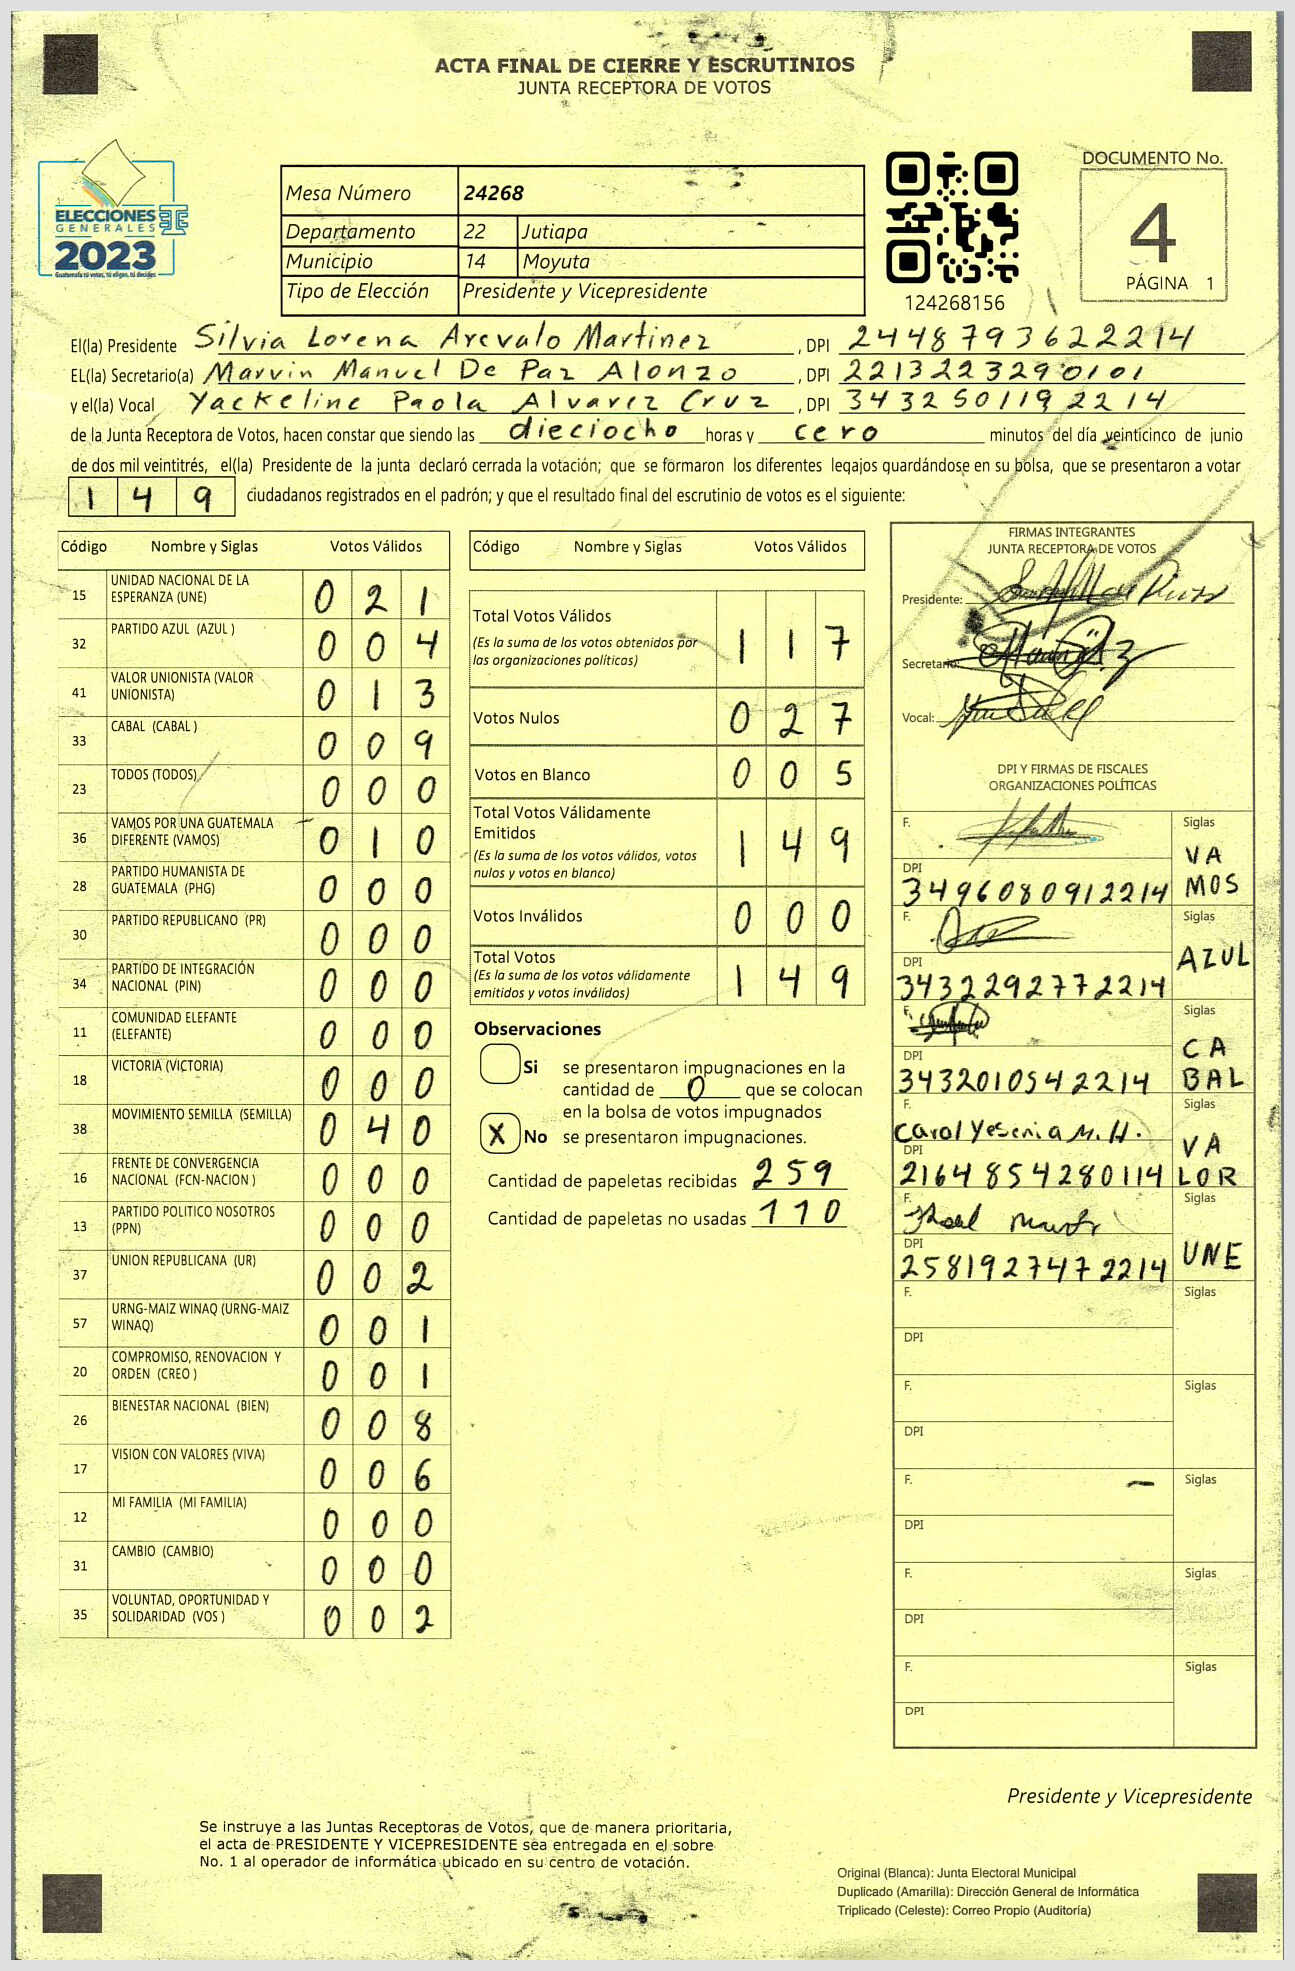 ACTA FINAL DE CIERRE Y ESCRUTINIOS
JUNTA RECEPTORA DE VOTOS
ELECCIONES
GENERALES
2023
Guatemala tú votas, tú eliges, tú decides
Mesa Número 24268
Departamento 22 Jutiapa
Municipio 14 Moyuta
Tipo de Elección Presidente y Vicepresidente
124268156
DOCUMENTO No.
4
PÁGINA 1
El(la) Presidente Silvia Lorena Arevalo Martinez , DPI 2448793622214
EL(la) Secretario(a) Marvin Manuel De Paz Alonzo , DPI 2213223290101
y el(la) Vocal Yackeline Paola Alvarez Cruz , DPI 3432501192214
de la Junta Receptora de Votos, hacen constar que siendo las dieciocho horas y cero minutos del día veinticinco de junio
de dos mil veintitrés, el(la) Presidente de la junta declaró cerrada la votación; que se formaron los diferentes legajos guardándose en su bolsa, que se presentaron a votar
149 ciudadanos registrados en el padrón; y que el resultado final del escrutinio de votos es el siguiente:
Código Nombre y Siglas Votos Válidos
15 UNIDAD NACIONAL DE LA ESPERANZA (UNE) 021
32 PARTIDO AZUL (AZUL ) 004
41 VALOR UNIONISTA (VALOR UNIONISTA) 013
33 CABAL (CABAL ) 009
23 TODOS (TODOS) 000
36 VAMOS POR UNA GUATEMALA DIFERENTE (VAMOS) 010
28 PARTIDO HUMANISTA DE GUATEMALA (PHG) 000
30 PARTIDO REPUBLICANO (PR) 000
34 PARTIDO DE INTEGRACIÓN NACIONAL (PIN) 000
11 COMUNIDAD ELEFANTE (ELEFANTE) 000
18 VICTORIA (VICTORIA) 000
38 MOVIMIENTO SEMILLA (SEMILLA) 040
16 FRENTE DE CONVERGENCIA NACIONAL (FCN-NACION ) 000
13 PARTIDO POLITICO NOSOTROS (PPN) 000
37 UNION REPUBLICANA (UR) 002
57 URNG-MAIZ WINAQ (URNG-MAIZ WINAQ) 001
20 COMPROMISO, RENOVACION Y ORDEN (CREO ) 001
26 BIENESTAR NACIONAL (BIEN) 008
17 VISION CON VALORES (VIVA) 006
12 MI FAMILIA (MI FAMILIA) 000
31 CAMBIO (CAMBIO) 000
35 VOLUNTAD, OPORTUNIDAD Y SOLIDARIDAD (VOS ) 002
Código Nombre y Siglas Votos Válidos
Total Votos Válidos 117
(Es la suma de los votos obtenidos por
las organizaciones políticas)
Votos Nulos 027
Votos en Blanco 005
Total Votos Válidamente
Emitidos 149
(Es la suma de los votos válidos, votos
nulos y votos en blanco)
Votos Inválidos 000
Total Votos 149
(Es la suma de los votos válidamente
emitidos y votos inválidos)
Observaciones
Si se presentaron impugnaciones en la
cantidad de 0 que se colocan
en la bolsa de votos impugnados
X No se presentaron impugnaciones.
Cantidad de papeletas recibidas 259
Cantidad de papeletas no usadas 110
FIRMAS INTEGRANTES
JUNTA RECEPTORA DE VOTOS
Presidente:
Secretario:
Vocal:
DPI Y FIRMAS DE FISCALES
ORGANIZACIONES POLÍTICAS
F. Siglas VAMOS
DPI 3496080912214
F. Siglas AZUL
DPI 3432292772214
F. Siglas CABAL
DPI 3432010542214
F. Carol Yesenia M. H. Siglas VALOR
DPI 2164854280114
F. Siglas UNE
DPI 2581927472214
F. Siglas
DPI
F. Siglas
DPI
F. Siglas
DPI
F. Siglas
DPI
F. Siglas
DPI
Presidente y Vicepresidente
Se instruye a las Juntas Receptoras de Votos, que de manera prioritaria,
el acta de PRESIDENTE Y VICEPRESIDENTE sea entregada en el sobre
No. 1 al operador de informática ubicado en su centro de votación.
Original (Blanca): Junta Electoral Municipal
Duplicado (Amarilla): Dirección General de Informática
Triplicado (Celeste): Correo Propio (Auditoría)